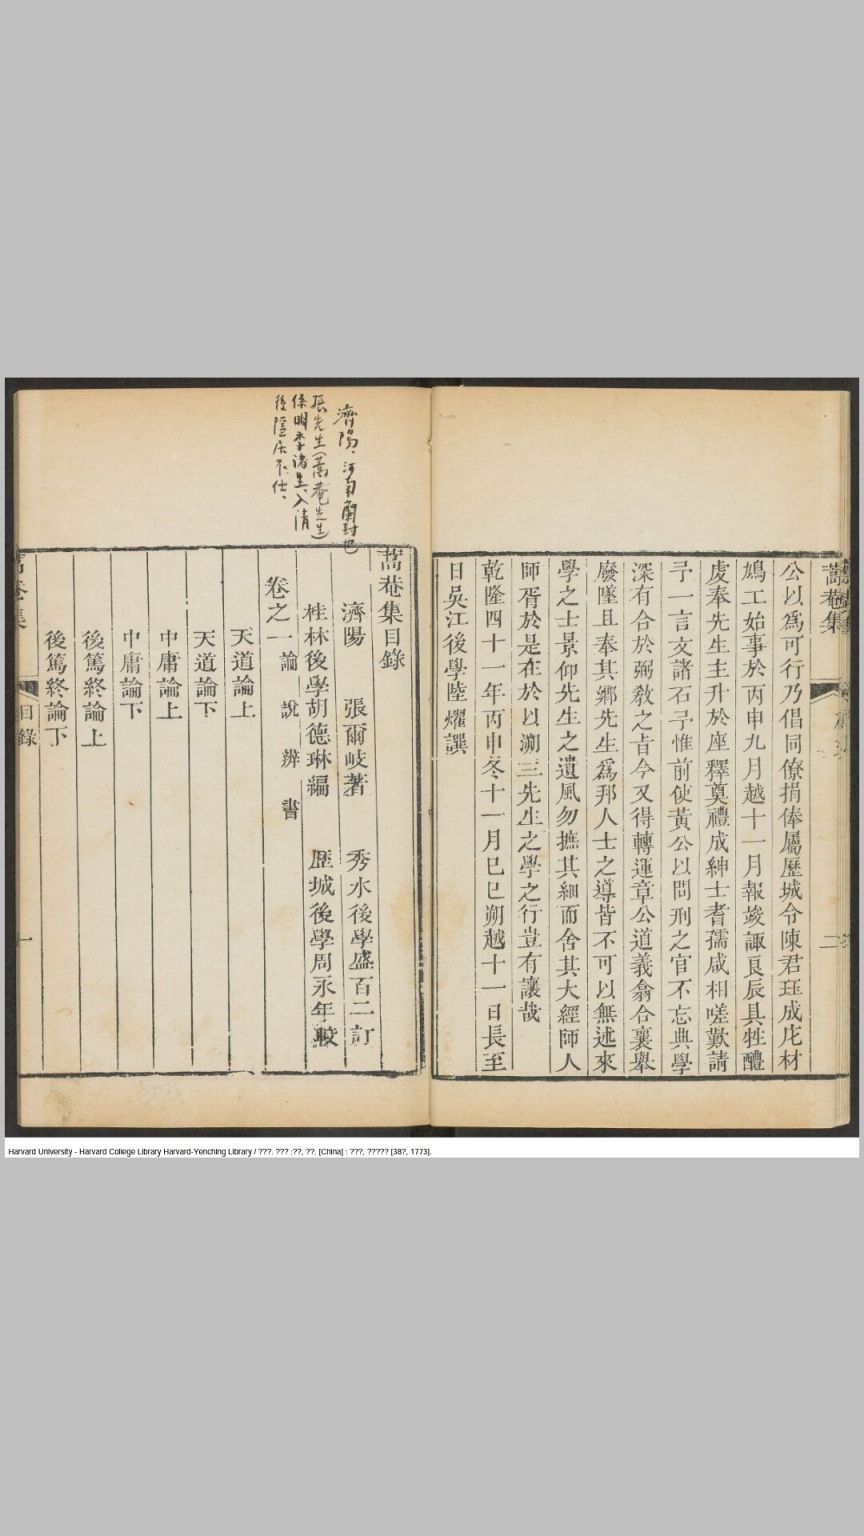 蒿菴集
公以爲可行乃倡同僚捐俸屬歷城令陳君珏成庀材
鳩工始事於丙申九月越十一月報竣諏良辰具牲醴
虔奉先生主升於座釋奠禮成紳士耆孺咸相嗟歎請
予一言文諸石予惟前使黃公以問刑之官不忘典學
深有合於弼敎之旨今又得轉運章公道義翕合襄舉
廢墜且奉其鄉先生爲邦人士之導皆不可以無述來
學之士景仰先生之遺風勿摭其細而舍其大經師人
師胥於是在於以溯三先生之學之行豈有讓哉
乾隆四十一年丙申冬十一月己巳朔越十一日長至
日吳江後學陸燿譔
濟陽、河南蘭封也
張先生(蒿菴先生)
係明季諸生、入清
後隱居不仕、
蒿菴集目錄
濟陽 張爾岐著 秀水後學盛百二訂
桂林後學胡德琳編 歷城後學周永年較
卷之一 論 說 辨 書
天道論上
天道論下
中庸論上
中庸論下
後篤終論上
後篤終論下
蒿菴集 目錄 一
Harvard University - Harvard College Library Harvard-Yenching Library / ???. ??? :??, ??. [China] : ???, ????? [38?, 1773].